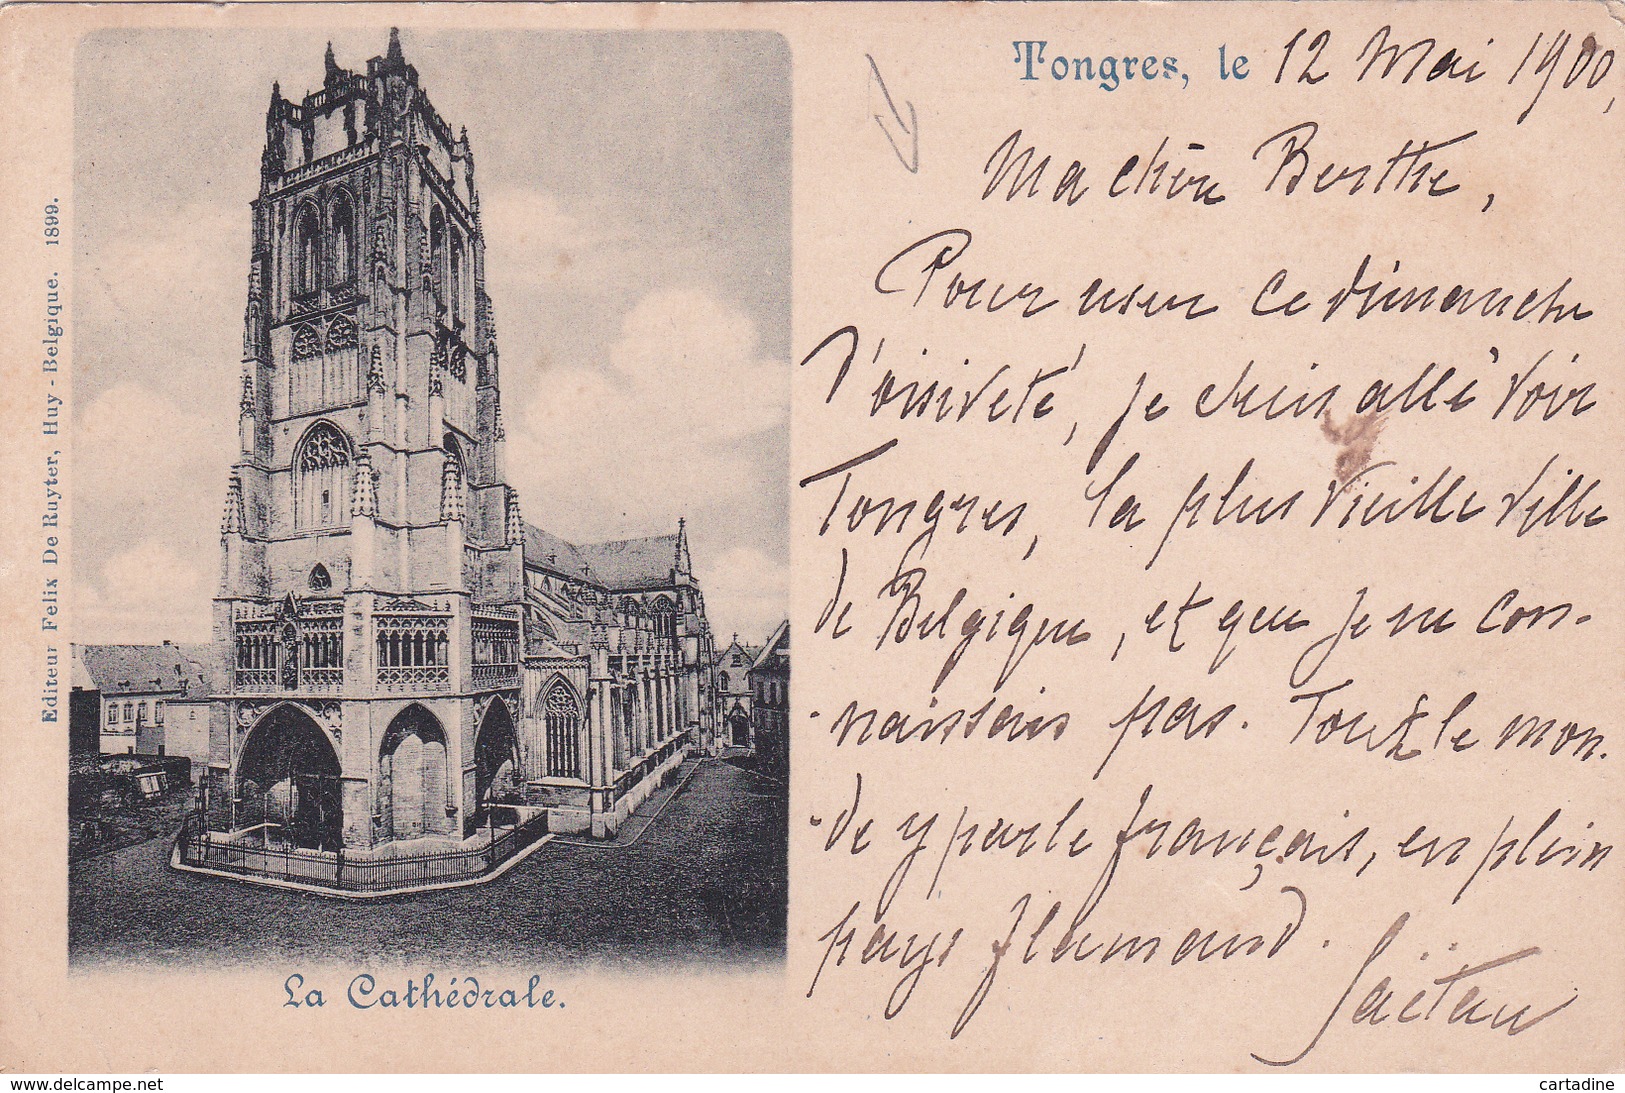 Tongres, le 12 Mai 1900,
Ma chère Berthe,
Pour user ce dimanche
d'oisiveté, je suis allé voir
Tongres, la plus vieille ville
de Belgique, et que je ne con-
-naissais pas. Tout le mon-
-de y parle français, en plein
pays flamand.
Gaëtan
La Cathédrale.
Editeur Felix De Ruyter, Huy - Belgique. 1899.
www.delcampe.net
cartadine